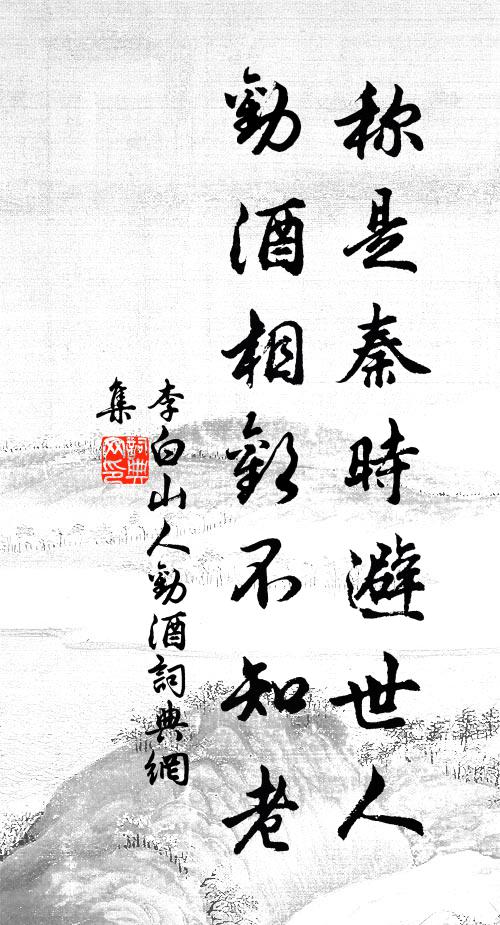 称是秦時避世人
勸酒相歡不知老
李白山人勸酒詞典網
集
詞典網印